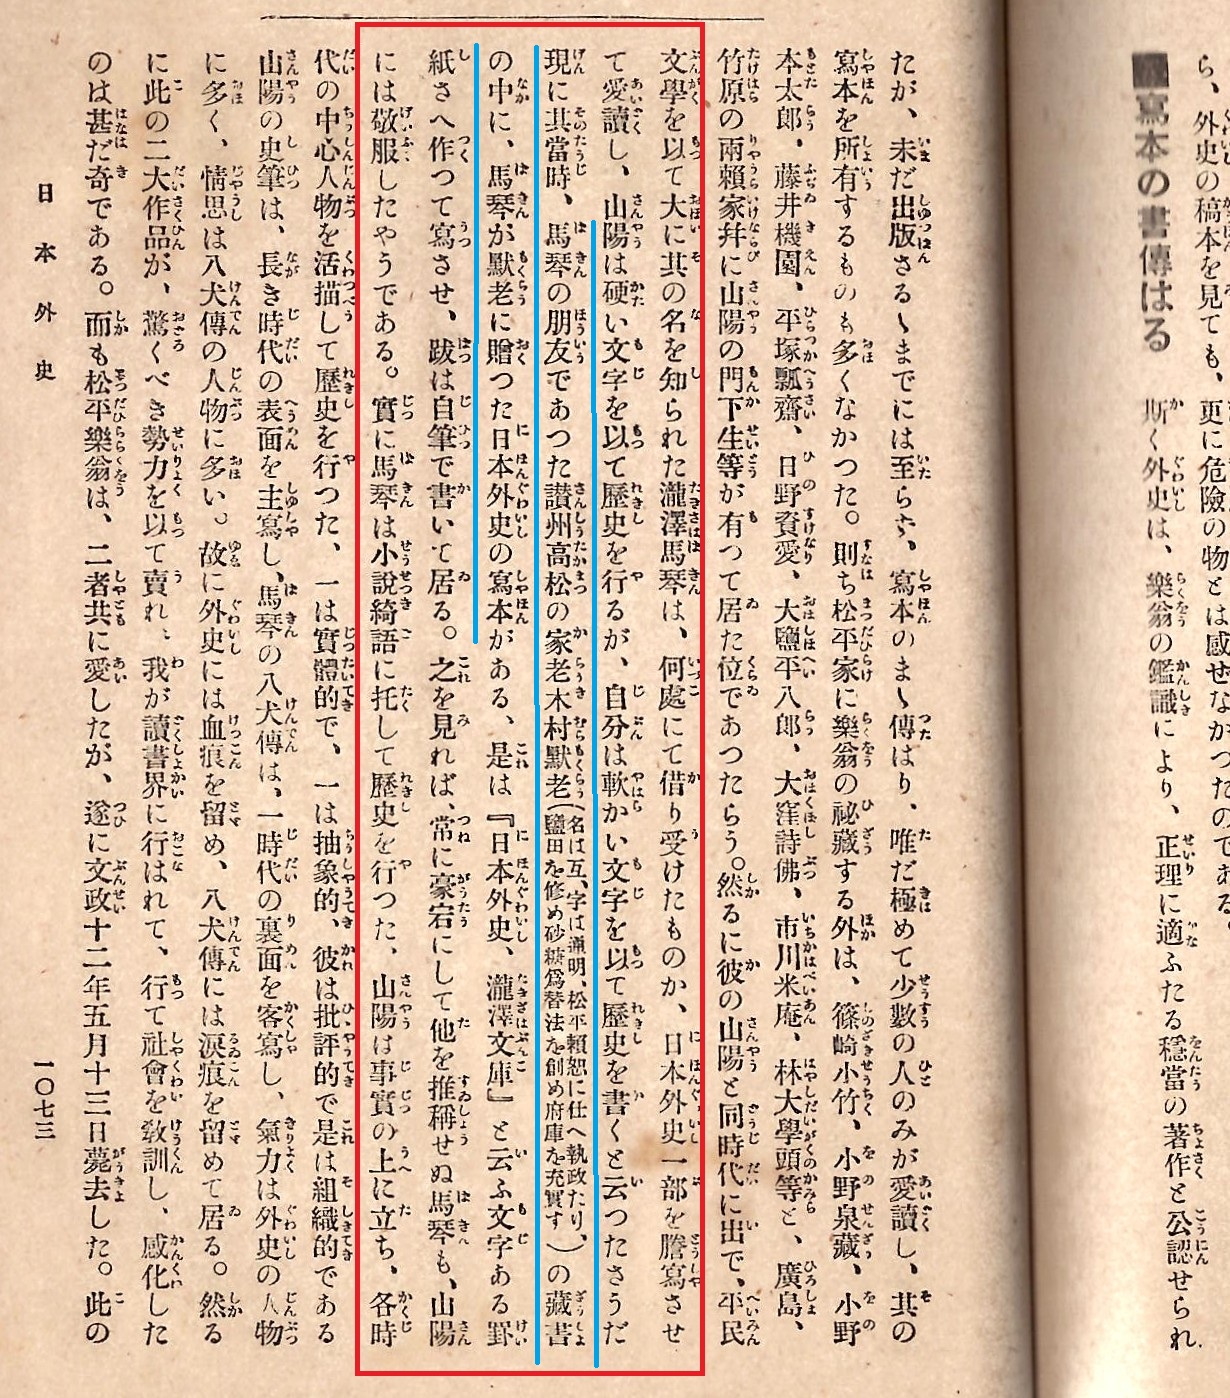 ら、外史の稿本を見ても、更に危險の物とは感せなかつたのである。
寫本の書傳はる 斯く外史は、樂翁の鑑識により、正理に適ふたる穩當の著作と公認せられ
たが、未だ出版さるゝまでには至らず、寫本のまゝ傳はり、唯だ極めて少數の人のみが愛讀し、其の
寫本を所有するものも多くなかつた。則ち松平家に樂翁の祕藏する外は、篠崎小竹、小野泉藏、小野
本太郎、藤井機園、平塚瓢齋、日野資愛、大鹽平八郎、大窪詩佛、市川米庵、林大學頭等と、廣島、
竹原の兩賴家幷に山陽の門下生等が有つて居た位であつたらう。然るに彼の山陽と同時代に出で、平民
文學を以て大に其の名を知られた瀧澤馬琴は、何處にて借り受けたものか、日本外史一部を謄寫させ
て愛讀し、山陽は硬い文字を以て歷史を行るが、自分は軟かい文字を以て歷史を書くと云つたさうだ
現に其當時、馬琴の朋友であつた讃州高松の家老木村默老(名は互、字は通明、松平賴恕に仕へ執政たり、鹽田を修め砂糖爲替法を創め府庫を充實す、)の藏書
の中に、馬琴が默老に贈つた日本外史の寫本がある、是は『日本外史、瀧澤文庫』と云ふ文字ある罫
紙さへ作つて寫させ、跋は自筆で書いて居る。之を見れば、常に豪宕にして他を推稱せぬ馬琴も、山陽
には敬服したやうである。實に馬琴は小說綺語に托して歷史を行つた、山陽は事實の上に立ち、各時
代の中心人物を活描して歷史を行つた、一は實體的で、一は抽象的、彼は批評的で是は組織的である
山陽の史筆は、長き時代の表面を主寫し、馬琴の八犬傳は、一時代の裏面を客寫し、氣力は外史の人物
に多く、情思は八犬傳の人物に多い。故に外史には血痕を留め、八犬傳には淚痕を留めて居る。然る
に此の二大作品が、驚くべき勢力を以て賣れ、我が讀書界に行はれて、行て社會を敎訓し、感化した
のは甚だ奇である。而も松平樂翁は、二者共に愛したが、遂に文政十二年五月十三日薨去した。此の
日本外史
一〇七三